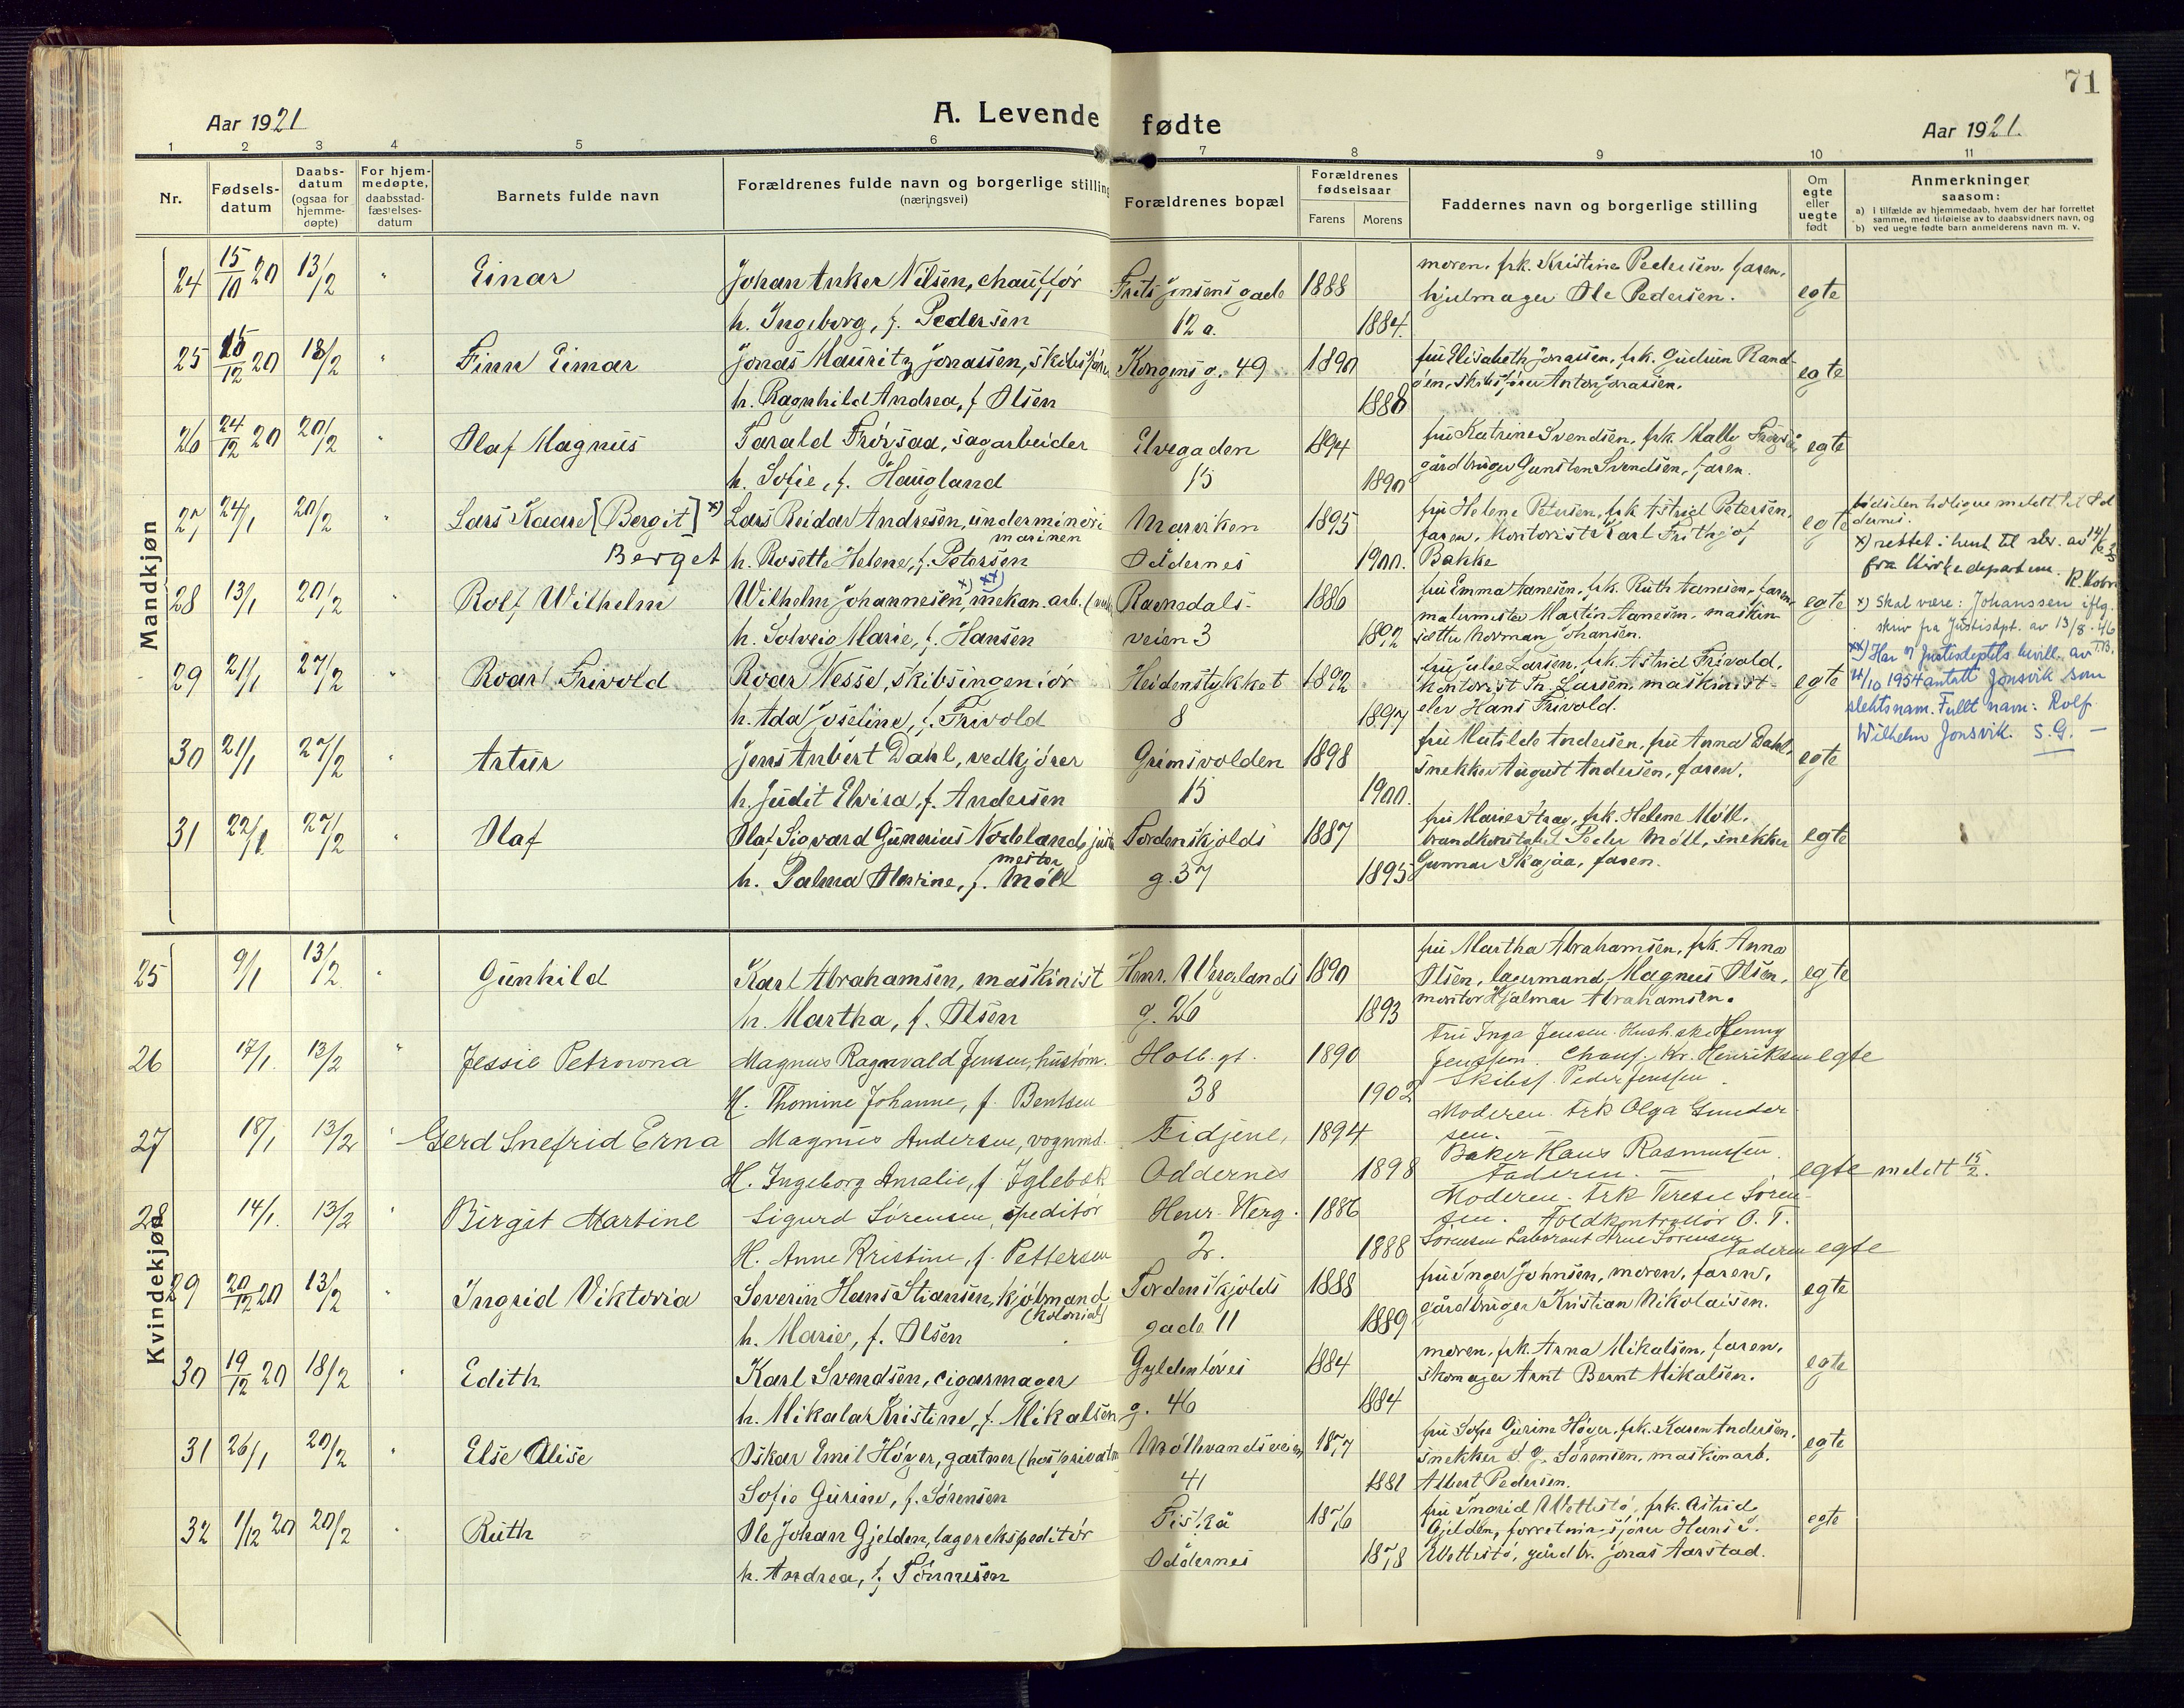 71
Aar 1921
A. Levende fødte
Aar 1921.
1 2 3 4 5 6 7 8 9 10 11
Nr.
Fødsels-
datum
Daabs-
datum
(ogsaa for
hjemme-
døpte)
For hjem-
medøpte,
daabsstad-
fæstelses-
datum
Barnets fulde navn
Forældrenes fulde navn og borgerlige stilling
(næringsvei)
Forældrenes bopæl
Forældrenes
fødselsaar
Farens
Morens
Faddernes navn og borgerlige stilling
Om
egte
eller
uegte
født
Anmerkninger
saasom:
a) i tilfælde av hjemmedaab, hvem der har forrettet
samme, med tilføielse av to daabsvidners navn, og
b) ved uegte fødte barn anmelderens navn m. v.
Mandkjøn
24 15/10 20 13/2 " Einar Johan Anker Nilsen, chauffør Frits Jensens gade 1888 moren, frk. Kristine Pedersen, faren,
hjulmager Ole Pedersen. egte
h. Ingeborg, f. Pedersen 12 a. 1884.
25 15/12 20 18/2 " Finn Eimar Jonas Mauritz Jonassen, skibsfører Kongens g. 49 1890 fru Elisabeth Jonassen, frk. Gudrun Rand-
øen, skibsfører Anton Jonassen. egte
h. Ragnhild Andrea, f Olsen 1888
26 24/12 20 20/2 " Olaf Magnus Tarald Frøysaa, sagarbeider Elvegaden 1894 fru Katrine Svendsen, frk. Mally
gårdbruger Gunsten Svendsen, faren. egte
h. Sofie, f. Haugland 15 1890
27 24/1 20/2 " Lars Kaare [Bergit] x) Lars Reidar Andresen, underminør i
marinen Marviken 1895 fru Helene Petersen, frk Astrid Petersen,
faren, kontorist Karl Frithjof
Bakke egte
Berget h. Rosette Helene, f. Petersen Oddernes 1900.
fødselen tidligere meldt til Od
dernes.
x) rettet i henh. til skr. av 14/6 35
fra Kirkedepartem.
28 13/1 20/2 " Rolf Wilhelm Wilhelm Johannesen, x) xx) mekan. arb. Ravnedals- 1886 fru Emma Aanesen, frk. Ruth Aanesen, faren,
malermester Martin Aanesen, maskin
sætter Norman Johansen. egte
h. Solveig Marie, f. Hansen veien 3 1892
x) Skal være: Johanssen iflg.
skriv fra Justisdpt. av 13/8-46
T.B.
xx) Har v/ Justisdeptets bevill. av
21/10 1954 antatt Jonsvik som
slektsnam. Fullt navn: Rolf
Wilhelm Jonsvik. S.G. —
29 21/1 27/2 " Roar Frivold Roar Nesse, skibsingeniør Heidenstykket 1892 fru Julie Larsen, frk. Astrid Frivold,
kontorist Th. Larsen, maskinist-
elev Hans Frivold. egte
h. Ada Joseline, f. Frivold 8 1897
30 21/1 27/2 " Artur Jens Anbert Dahl, vedkjører Grimsvolden 1898 fru Matilde Andersen, fru Anna Dahl,
snekker August Andersen, faren. egte
h. Judit Elvira, f. Andersen 15 1900.
31 22/1 27/2 " Olaf Olaf Sigvard Gunerius Nodeland,
mester Tordenskjolds 1887 fru Marie Aray, frk. Helene Møll,
brandkonstabel Peder Møll, snekker
Gunnar Skajaa, faren. egte
h. Palma Alvine, f. Møll g. 37 1895
Kvindekjøn
25 9/1 13/2 " Gunhild Karl Abrahamsen, maskinist Henr. Wergelands 1890 fru Martha Abrahamsen, frk. Anna
Olsen, lagermand Magnus Olsen,
montør Hjalmar Abrahamsen. egte
h. Martha, f. Olsen g. 26 1893
26 17/1. 13/2 " Jessie Petrowna Magnus Ragnvald Jensen, hustøm. Holb. gt. 1890 Fru Inga Jensen. Hush. sk. Henny
Jenssen. Chauf. Kr. Henriksen
Skibsf. Peder Jenssen. egte
H. Thomine Johanne, f. Bentsen 38 1902
27 18/1 13/2 " Gerd Snefrid Erna Magnus Andersen, vognmd. Fidjene, 1894 Moderen. Frk Olga Gunder
sen.
Baker Hans Rasmussen.
Faderen. —
H. Ingeborg Amalie, f. Iglebæk Oddernes 1898 egte meldt 15/2.
28 14/1. 13/2 " Birgit Martine Sigurd Sørensen, speditør Henr. Werg. 1886 Moderen. Frk Terese Søren-
sen. Toldkontrollør O. T.
Sørensen Laborant Arne Sørensen
Faderen egte
H. Anne Kristine, f. Pettersen 2. 1888
29 20/12 20 13/2 " Ingrid Viktoria Severin Hans Stiansen, kjøbmand
(kolonial) Tordenskjolds 1888 fru Inger Johnsen, moren, faren,
gårdbruger Kristian Nikolaisen. egte
h. Marie, f. Olsen gade 11 1889
30 19/12 20 18/2 " Edith Karl Svendsen, cigarmager Gyldenløves 1884 moren, frk. Anna Mikalsen, faren,
skomager Arnt Bernt Mikalsen. egte
h. Mikala Kristine, f. Mikalsen g. 46 1884
31 26/1 20/2 " Else Alise Oskar Emil Høyer, gartner (hos privatm Møllevandsveien 1877 fru Sofie Gurine Høyer, frk. Karen Andersen,
snekker S. G. Sørensen, maskinarb.
Albert Pedersen. egte
Sofie Gurine, f. Sørensen 41 1881
32 1/12 20 20/2 " Ruth Ole Johan Gjelden, lagerekspeditør Fiskå 1876 fru Ingrid Wettestø, frk. Astrid
Gjelden, forretningsfører Hans
Wettestø, gårdbr. Jonas Aarstad. egte
h. Andrea, f. Tønnesen Oddernes 1878